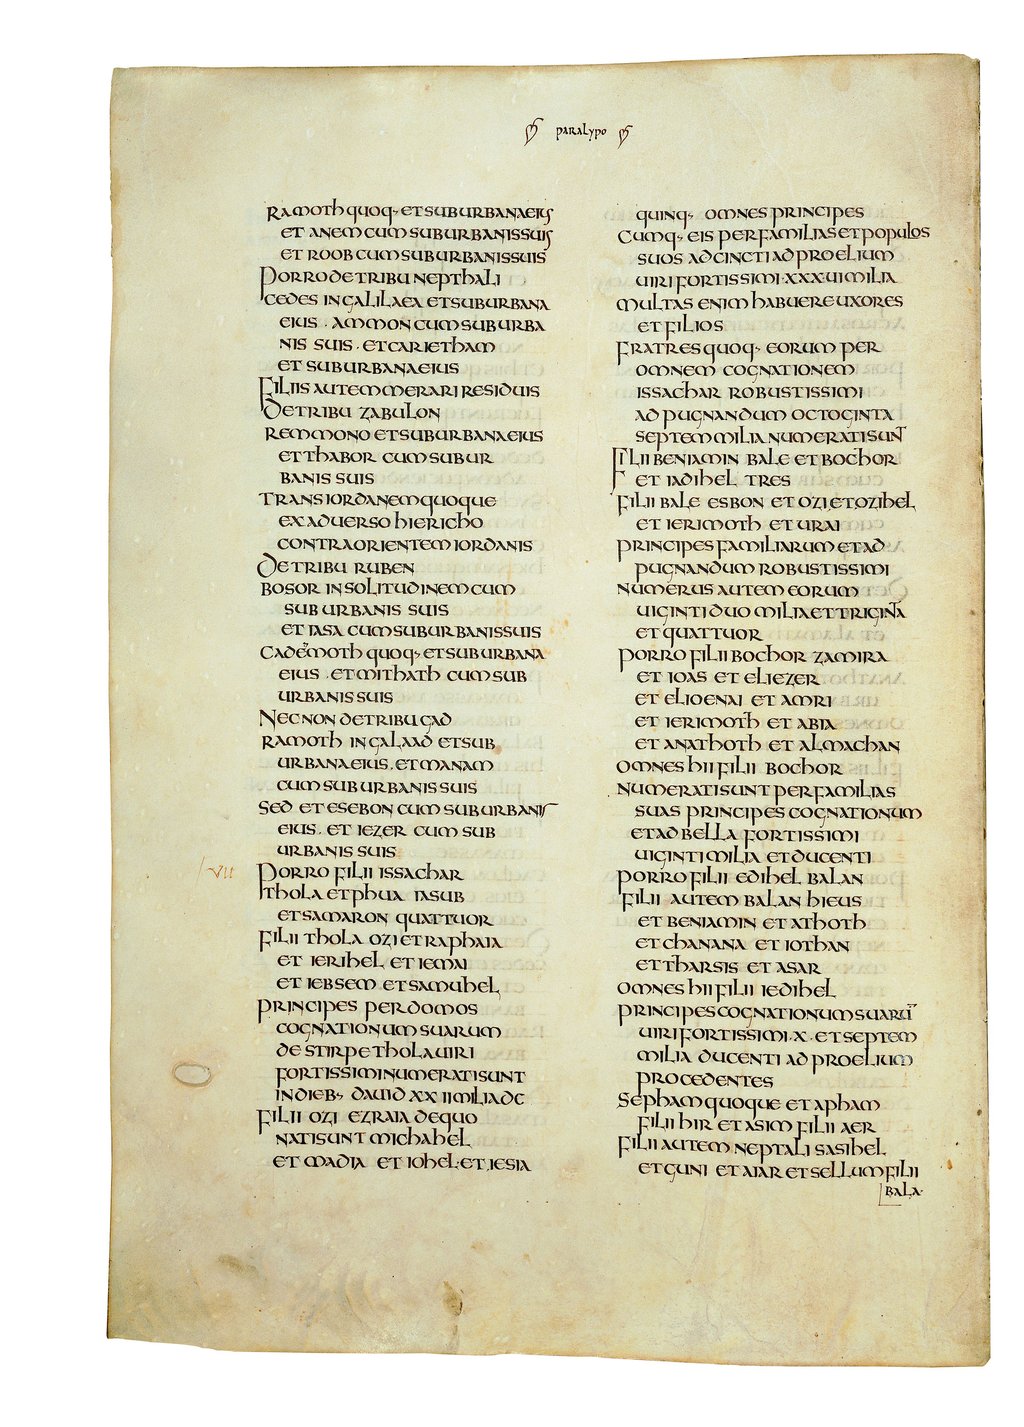 paralypo
RAMOTh quoq· ET SUBURBANA EIUS
ET ANEM CUM SUBURBANIS SUIS
ET ROOB CUM SUBURBANIS SUIS
PORRO DE TRIBU NEPThALI
CEDES IN GALILAEA ET SUBURBANA
EIUS · AMMON CUM SUBURBA
NIS SUIS · ET CARIEThAM
ET SUBURBANA EIUS
FILIIS AUTEM MERARI RESIDUIS
DE TRIBU ZABULON
REMMONO ET SUBURBANA EIUS
ET ThABOR CUM SUBUR
BANIS SUIS
TRANS IORDANEM QUOQUE
EX ADUERSO hIERIChO
CONTRA ORIENTEM IORDANIS
DE TRIBU RUBEN
BOSOR IN SOLITUDINEM CUM
SUBURBANIS SUIS
ET IASA CUM SUBURBANIS SUIS
CADEMOTh quoq· ET SUBURBANA
EIUS · ET MIThATh CUM SUB
URBANIS SUIS
NEC NON DE TRIBU GAD
RAMOTh IN GALAAD ET SUB
URBANA EIUS · ET MANAM
CUM SUBURBANIS SUIS
SED ET ESEBON CUM SUBURBANIS
EIUS · ET IEZER CUM SUB
URBANIS SUIS
VII PORRO FILII ISSAChAR
ThOLA ET PhUA IASUB
ET SAMARON QUATTUOR
FILII ThOLA OZI ET RAPhAIA
ET IERIhEL ET IEMAI
ET IEBSEM ET SAMUhEL
PRINCIPES PER DOMOS
COGNATIONUM SUARUM
DE STIRPE ThOLA UIRI
FORTISSIMI NUMERATI SUNT
IN DIEB· DAUID XXII MILIA DC
FILII OZI EZRAIA DE QUO
NATI SUNT MIChAhEL
ET MADIA ET IOhEL · ET IESIA
QUINQ· OMNES PRINCIPES
CUMQ· EIS PER FAMILIAS ET POPULOS
SUOS ADCINCTI AD PROELIUM
UIRI FORTISSIMI · XXXUI MILIA
MULTAS ENIM hABUERE UXORES
ET FILIOS
FRATRES QUOQ· EORUM PER
OMNEM COGNATIONEM
ISSAChAR ROBUSTISSIMI
AD PUGNANDUM OCTOGINTA
SEPTEM MILIA NUMERATI SUNT
FILII BENIAMIN BALE ET BOChOR
ET IADIhEL TRES
FILII BALE ESBON ET OZI ET OZIhEL
ET IERIMOTh ET URAI
PRINCIPES FAMILIARUM ET AD
PUGNANDUM ROBUSTISSIMI
NUMERUS AUTEM EORUM
UIGINTI DUO MILIA ET TRIGIN̄A
ET QUATTUOR
PORRO FILII BOChOR ZAMIRA
ET IOAS ET ELIEZER
ET ELIOENAI ET AMRI
ET IERIMOTh ET ABIA
ET ANAThOTh ET ALMAChAN
OMNES hII FILII BOChOR
NUMERATI SUNT PER FAMILIAS
SUAS PRINCIPES COGNATIONUM
ET AD BELLA FORTISSIMI
UIGINTI MILIA ET DUCENTI
PORRO FILII EDIhEL BALAN
FILII AUTEM BALAN hIEUS
ET BENIAMIN ET AThOTh
ET ChANANA ET IOThAN
ET ThARSIS ET ASAR
OMNES hII FILII IEDIhEL
PRINCIPES COGNATIONUM SUARŪ
UIRI FORTISSIMI · X · ET SEPTEM
MILIA DUCENTI AD PROELIUM
PROCEDENTES
SEPhAM QUOQUE ET APhAM
FILII hIR ET ASIM FILII AER
FILII AUTEM NEPTALI SASIhEL
ET GUNI ET AIAR ET SELLUM FILII
BALA·